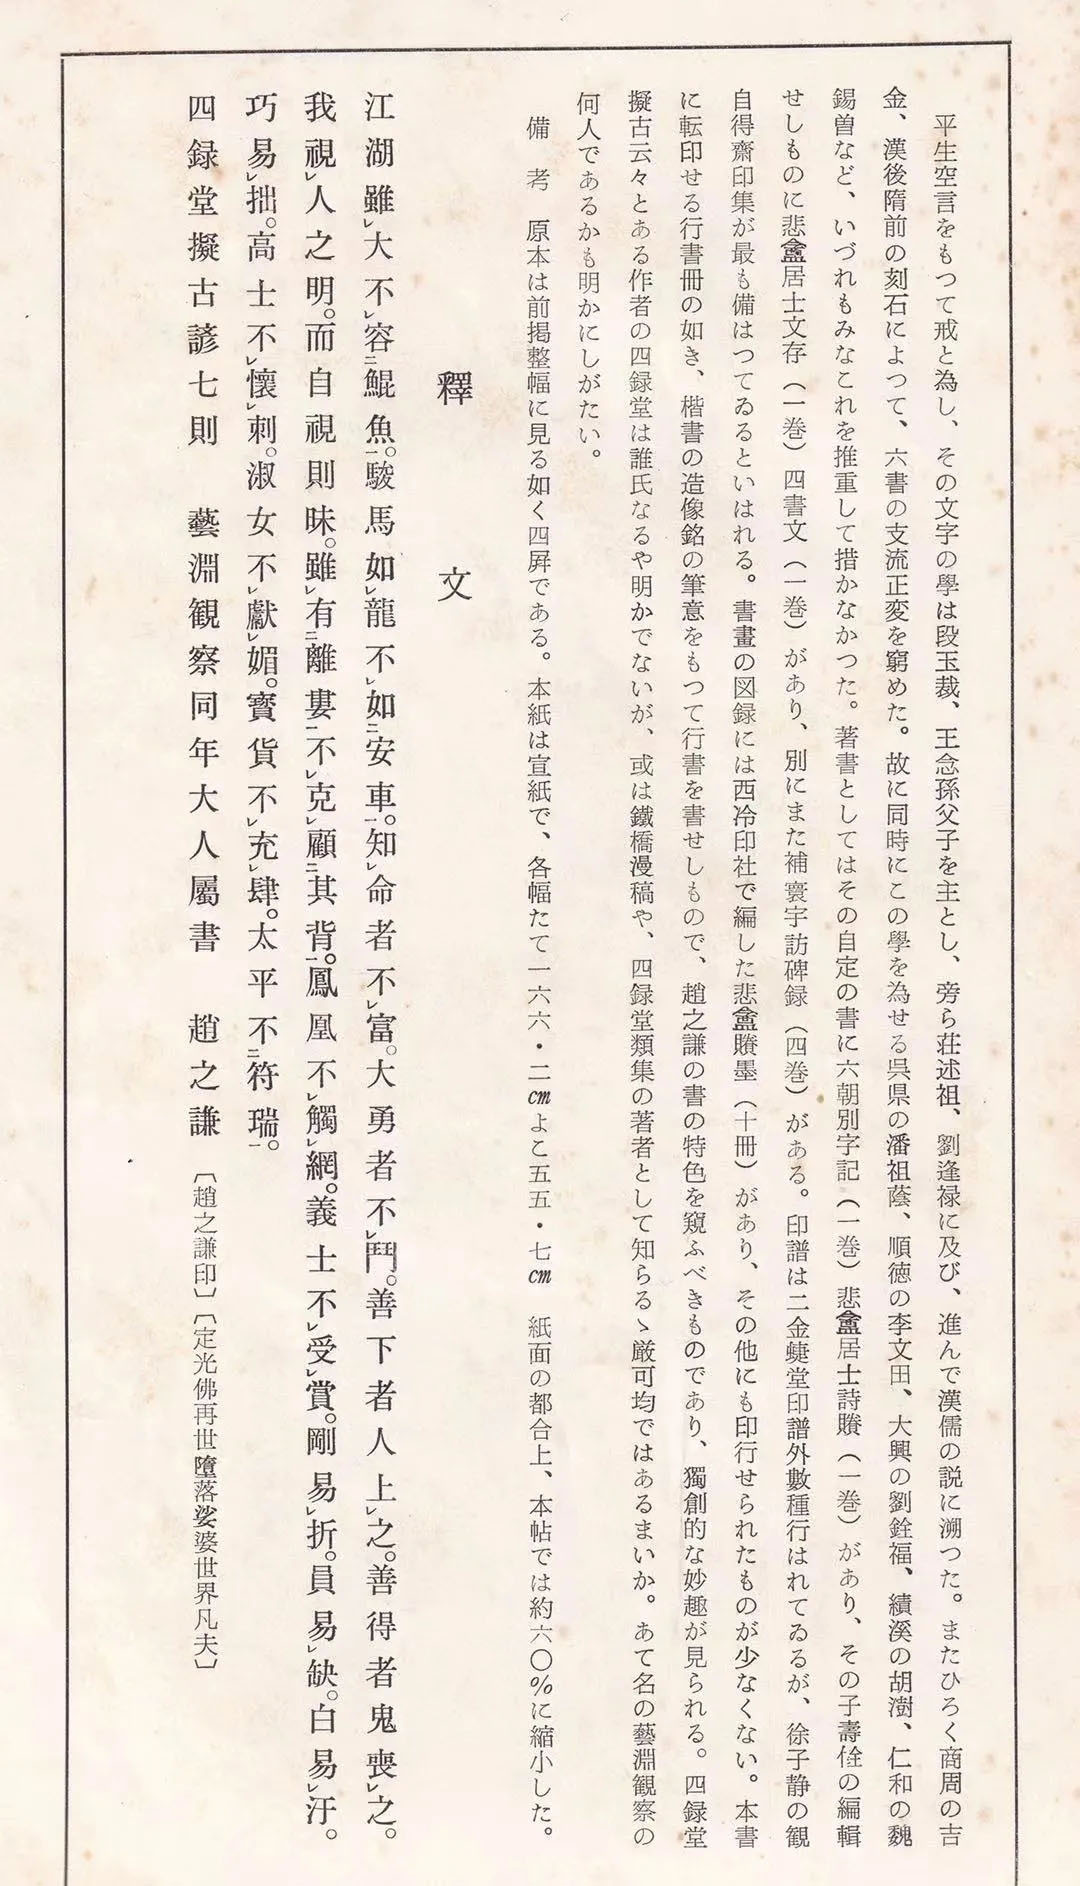 平生空言をもつて戒と為し、その文字の學は段玉裁、王念孫父子を主とし、旁ら荘述祖、劉逢禄に及び、進んで漢儒の説に溯つた。またひろく商周の吉
金、漢後隋前の刻石によつて、六書の支流正変を窮めた。故に同時にこの學を為せる呉県の潘祖蔭、順徳の李文田、大興の劉銓福、績溪の胡澍、仁和の魏
錫曽など、いづれもみなこれを推重して措かなかつた。著書としてはその自定の書に六朝別字記（一巻）悲盦居士詩賸（一巻）があり、その子壽佺の編輯
せしものに悲盦居士文存（一巻）四書文（一巻）があり、別にまた補寰宇訪碑録（四巻）がある。印譜は二金蜨堂印譜外數種行はれてゐるが、徐子静の観
自得齋印集が最も備はつてゐるといはれる。書畫の図録には西冷印社で編した悲盦賸墨（十冊）があり、その他にも印行せられたものが少なくない。本書
に転印せる行書冊の如き、楷書の造像銘の筆意をもつて行書を書せしもので、趙之謙の書の特色を窺ふべきものであり、獨創的な妙趣が見られる。四録堂
擬古云々とある作者の四録堂は誰氏なるや明かでないが、或は鐵橋漫稿や、四録堂類集の著者として知らるゝ厳可均ではあるまいか。あて名の藝淵観察の
何人であるかも明かにしがたい。
備　考　原本は前掲整幅に見る如く四屛である。本紙は宣紙で、各幅たて一六六・二cmよこ五五・七cm　紙面の都合上、本帖では約六〇%に縮小した。
釋　文
江湖雖レ大不レ容ニ鯤魚。一駿馬如レ龍不レ如ニ安車。一知レ命者不レ富。大勇者不レ鬥。善下者人上レ之。善得者鬼喪レ之。
我視レ人之明。而自視則昧。雖レ有ニ離婁一不レ克レ顧ニ其背。一鳳凰不レ觸レ網。義士不レ受レ賞。剛易レ折。員易レ缺。白易レ汙。
巧易レ拙。高士不レ懷レ刺。淑女不レ獻レ媚。寳貨不レ充レ肆。太平不ニ符瑞。一
四録堂擬古諺七則　藝淵観察同年大人屬書　趙之謙　〔趙之謙印〕〔定光佛再世墮落娑婆世界凡夫〕